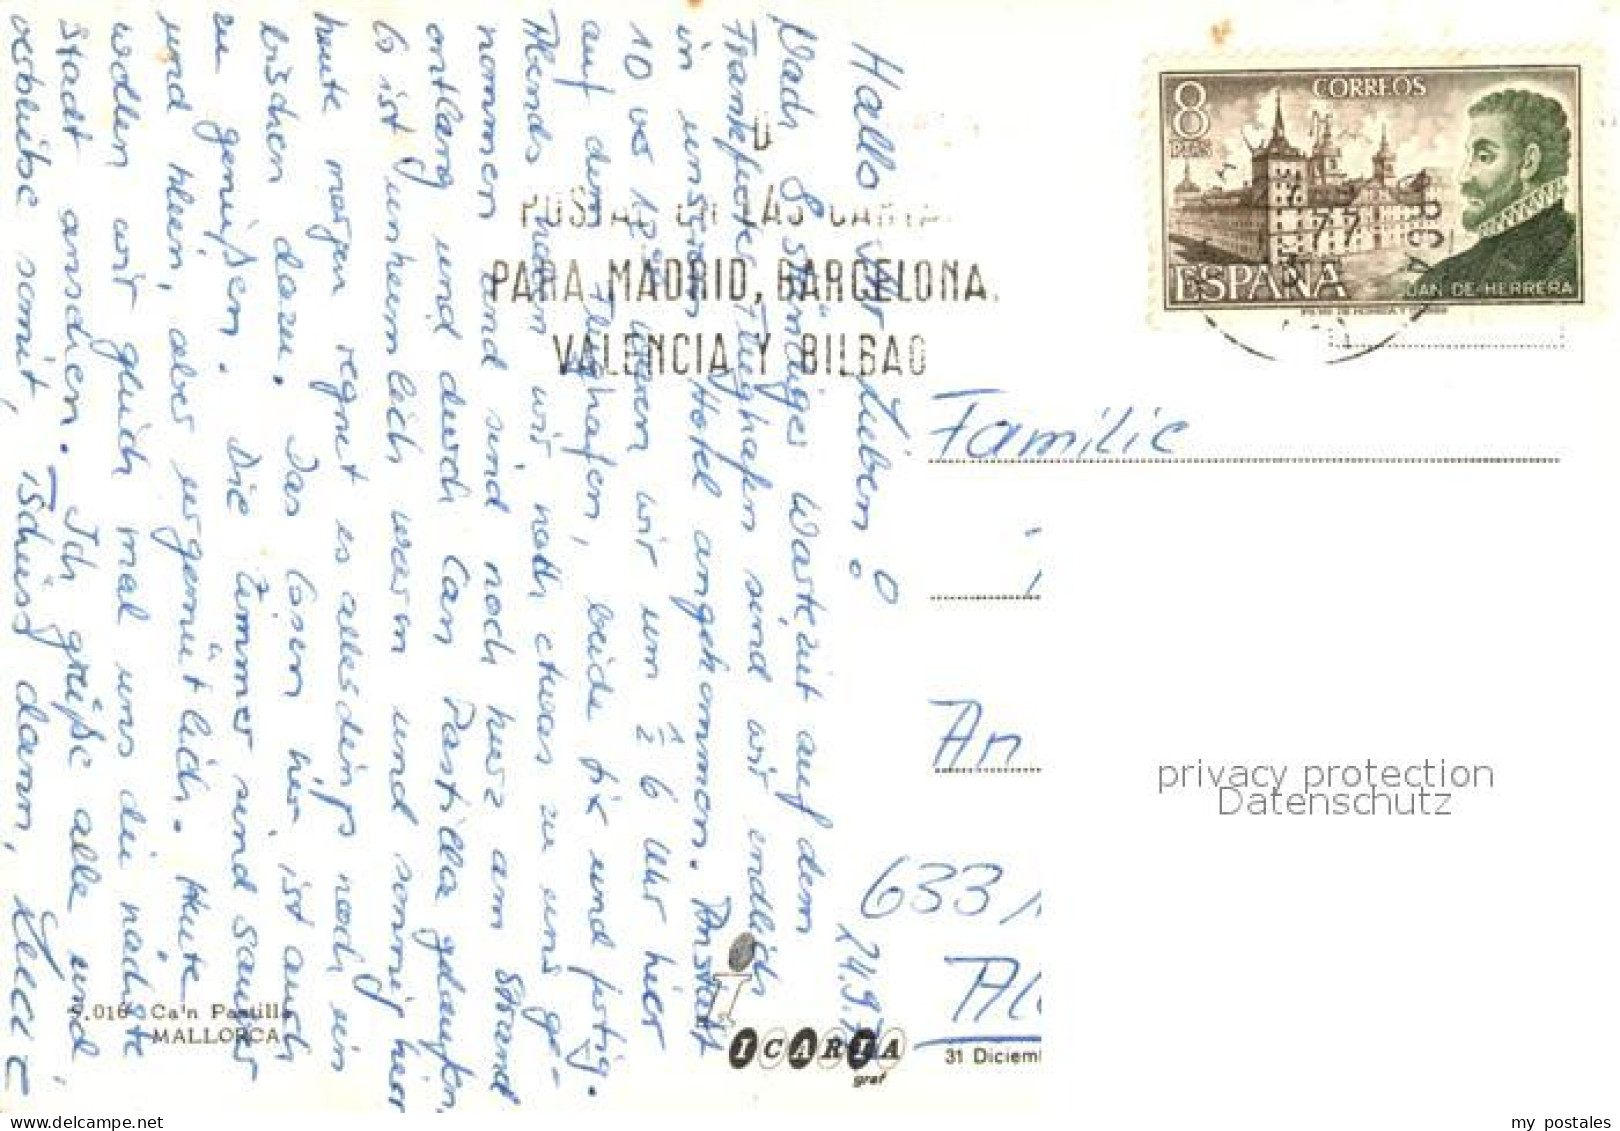 Hallo ihr Lieben!
24.9.
Nach 8 stündiges Wartezeit auf dem
Frankfurter Flughafen sind wir endlich
in unserem Hotel angekommen. Anstatt
10 vor 12 waren wir um ½ 6 Uhr hier
auf dem Flughafen, beide fix und fertig.
Abends haben wir noch etwas zu uns ge-
nommen und sind noch kurz am Strand
entlang und durch Can Pastilla gelaufen.
Es ist unheimlich warm und sonnig hier
heute morgen regnet es allerdings noch ein
bißchen dazu. Das Essen hier ist auch
zu genießen. Die Zimmer sind sauber
und klein, aber urgemütlich. Heute
wollen wir gleich mal uns die nächste
Stadt ansehen. Ich grüße alle und
verbleibe somit, Tschüss dann,
9.016 Ca'n Pastilla
MALLORCA
ICARIA
graf
POSTAL EN LAS CARTAS
PARA MADRID, BARCELONA,
VALENCIA Y BILBAO
8
PTAS
CORREOS
ESPAÑA
JUAN DE HERRERA
Familie
An
633
Al
31 Diciem
privacy protection
Datenschutz
my postales